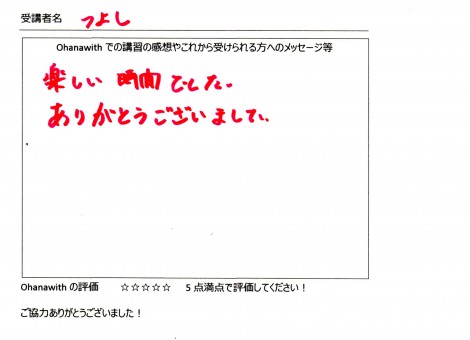 受講者名 つよし
Ohanawith での講習の感想やこれから受けられる方へのメッセージ等
楽しい時間でした。
ありがとうございました。
Ohanawith の評価 ☆☆☆☆☆ 5 点満点で評価してください！
ご協力ありがとうございました！